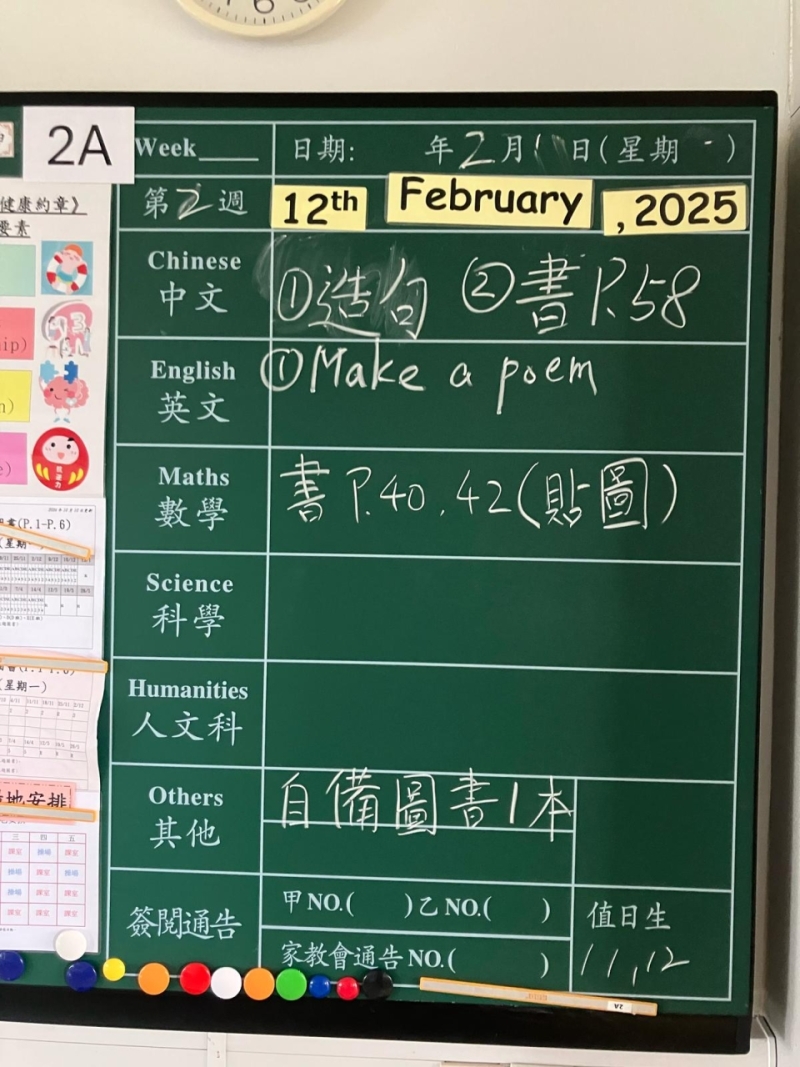 2A
Week____ 日期: 年2月 日(星期 )
第2週 12th February ,2025
健康約章》
要素
Chinese
中文
①造句 ②書P.58
English
英文
①Make a poem
Maths
數學
書P.40,42(貼圖)
Science
科學
Humanities
人文科
Others
其他
自備圖書1本
簽閱通告
甲NO.( )乙NO.( )
家教會通告NO.( )
值日生
11,12
書(P.1-P.6)
(星期一)
地安排
三 四 五
2A